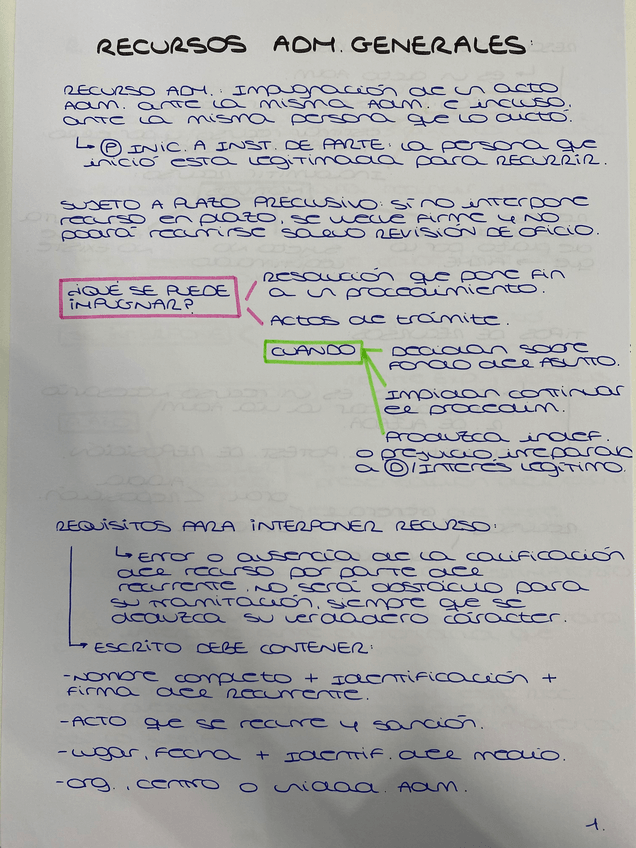 RECURSOS ADM. GENERALES:
RECURSO ADM.: Impugnación de un acto
Adm. ante la misma Adm. e incluso,
ante la misma persona que lo dictó.
↳ Ⓟ INIC. A INST. DE PARTE: la persona que
inició esta legitimada para RECURRIR.
SUJETO A PLAZO PRECLUSIVO: si no interpone
recurso en plazo, se vuelve firme y NO
podrá recurrirse salvo REVISIÓN DE OFICIO.
¿QUÉ SE PUEDE
IMPUGNAR?
Resolución que pone fin
a un procedimiento.
Actos de trámite.
CUANDO
Decidan sobre
fondo del ASUNTO.
Impidan continuar
el procedim.
Produzca indef.
o prejuicio irreparab
a Ⓓ/Interés legítimo.
REQUISITOS PARA INTERPONER RECURSO:
↳ Error o ausencia de la calificación
del recurso por parte del
recurrente, no será obstáculo para
su tramitación, siempre que se
deduzca su verdadero cáracter.
→ ESCRITO DEBE CONTENER:
-Nombre completo + Identificación +
firma del Recurrente.
-ACTO que se recurre y sanción.
-Lugar, fecha + Identif. del medio.
-Org., centro o unidad. Adm.
1.